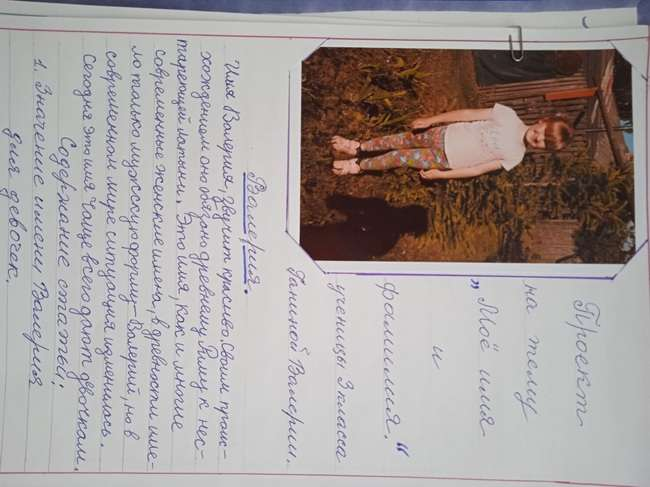 Проект
на тему
„Моё имя
и
фамилия.“
ученицы 3 класса
Ганиной Валерии.
Валерия.
Имя Валерия, звучит красиво. Своим проис-
хождением оно обязано древнему Риму к нес-
тареющей латыни. Это имя, как и многие
современные женские имена, в древности име-
ло только мужскую форму – Валерий, но в
современном мире ситуация изменилась.
Сегодня это имя чаще всего дают двочкам.
Содержание статьи:
1. Значение имени Валерия
для девочек.